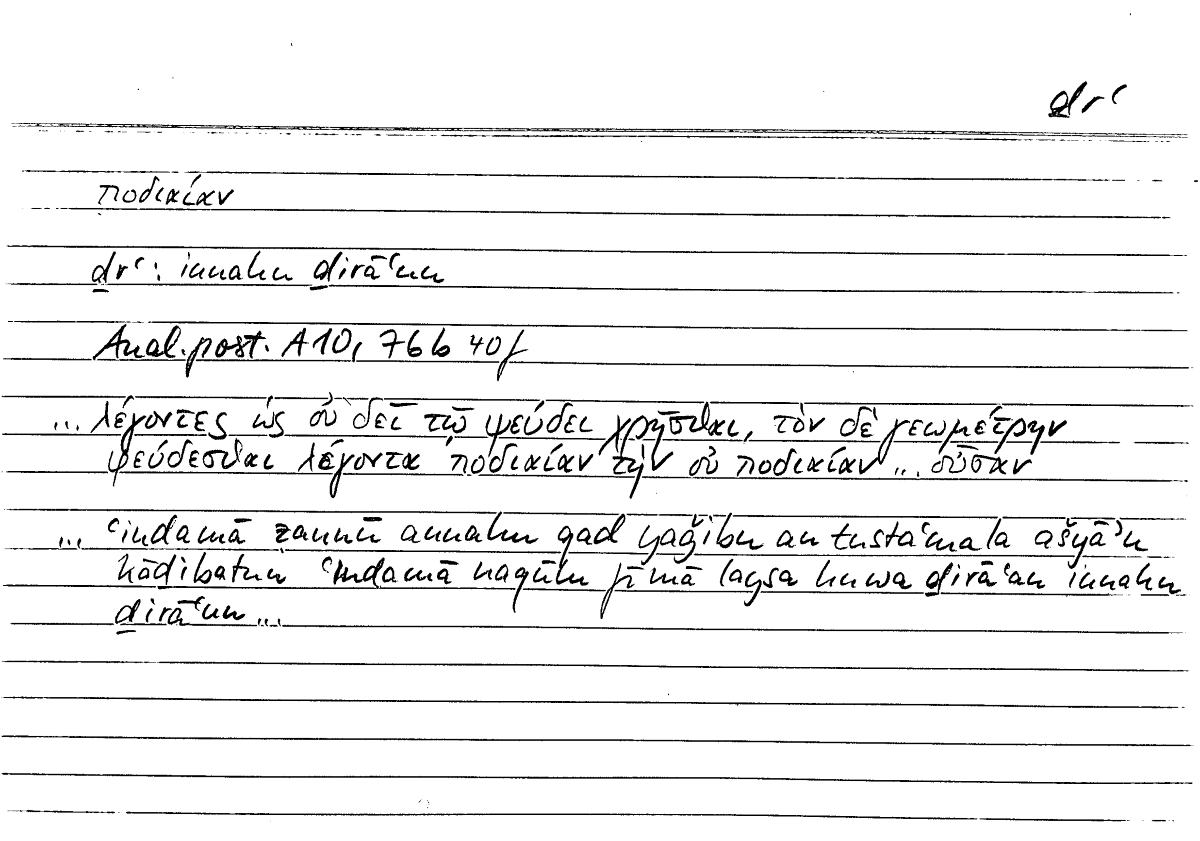 ḏrʿ
ποδιαίαν
ḏrʿ: innahu ḏirāʿun
Anal.post. A10, 76b 40f
... λέγοντες ὡς οὐ δεῖ τῷ ψεύδει χρῆσθαι, τὸν δὲ γεωμέτρην
ψεύδεσθαι λέγοντα ποδιαίαν τὴν οὐ ποδιαίαν ... οὖσαν
... ʿindamā ẓannū annahu qad yaǧibu an tustaʿmala ašyāʾu
kāḏibatun ʿindamā naqūlu fīmā laysa huwa ḏirāʿan innahu
ḏirāʿun ...